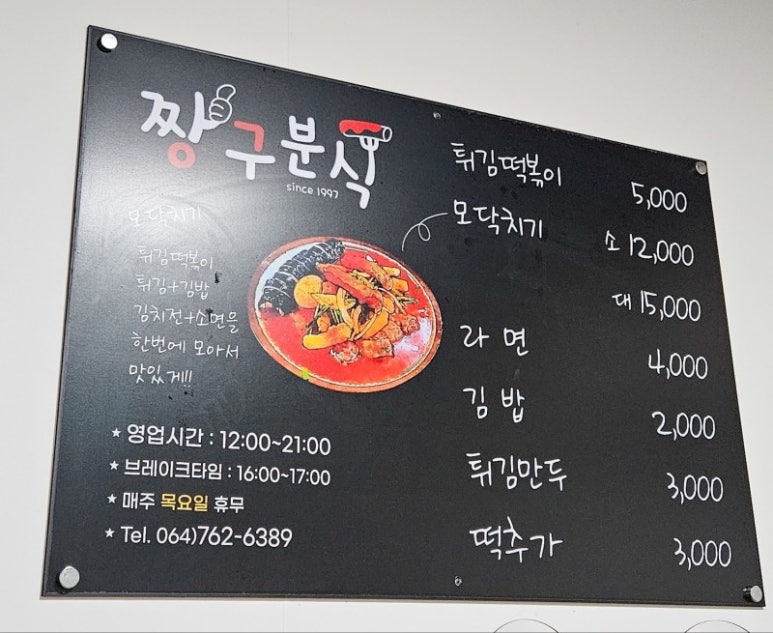 짱구분식
since 1997
모닥치기
튀김떡볶이
튀김+김밥
김치전+소면을
한번에 모아서
맛있게!!
★ 영업시간 : 12:00~21:00
★ 브레이크타임 : 16:00~17:00
★ 매주 목요일 휴무
★ Tel. 064)762-6389
튀김떡볶이 5,000
모닥치기 소 12,000
대 15,000
라면 4,000
김밥 2,000
튀김만두 3,000
떡추가 3,000